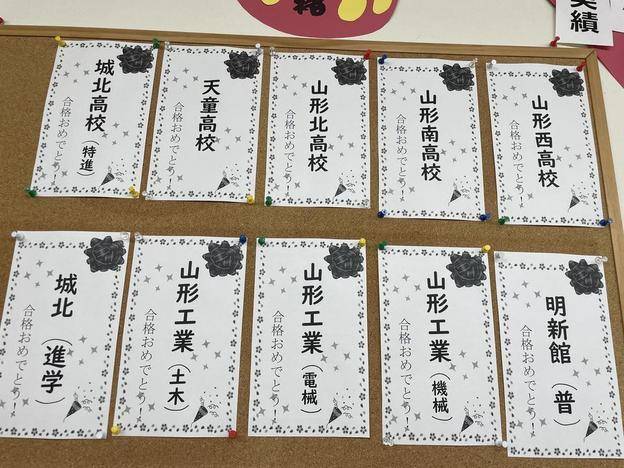 実績
山形西高校
合格おめでとう!
山形南高校
合格おめでとう!
山形北高校
合格おめでとう!
天童高校
合格おめでとう!
城北高校(特進)
合格おめでとう!
明新館(普)
合格おめでとう!
山形工業(機械)
合格おめでとう!
山形工業(電械)
合格おめでとう!
山形工業(土木)
合格おめでとう!
城北(進学)
合格おめでとう!